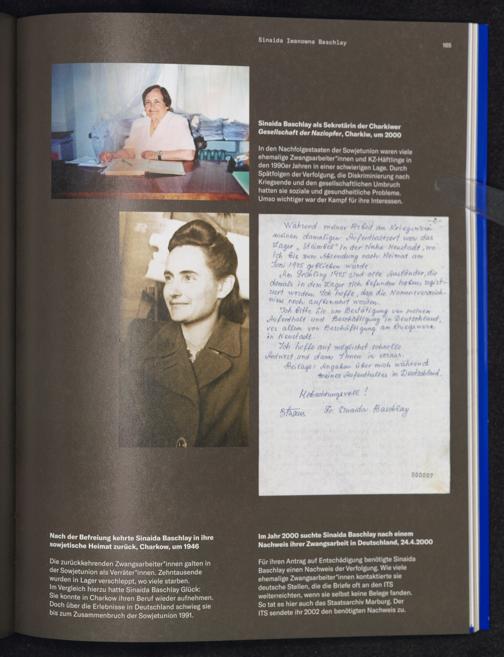 Sinaida Iwanowna Baschlay
165
Sinaida Baschlay als Sekretärin der Charkiwer
Gesellschaft der Naziopfer, Charkiw, um 2000
In den Nachfolgestaaten der Sowjetunion waren viele
ehemalige Zwangsarbeiter*innen und KZ-Häftlinge in
den 1990er Jahren in einer schwierigen Lage. Durch
Spätfolgen der Verfolgung, die Diskriminierung nach
Kriegsende und den gesellschaftlichen Umbruch
hatten sie soziale und gesundheitliche Probleme.
Umso wichtiger war der Kampf für ihre Interessen.
-2-
Während meiner Arbeit am Kriegswerk
meinen damaligen Aufenthaltsort war das
Lager in der Nähe Neustadt, wo
ich bis zur Absendung nach Heimat am
Juni 1945 geblieben wurde.
Am Frühling 1945 sind alle Ausländer, die
damals in dem Lager sich befunden haben, regist-
riert worden. Ich hoffe, daß die Namenverzeich-
nisse noch aufbewahrt worden.
Ich bitte Sie um Bestätigung von meinem
Aufenthalt und Beschäftigung in Deutschland,
vor allem von Beschäftigung am Kriegswerk
in Neustadt.
Ich hoffe auf möglichst schnelle
Antwort und danke Ihnen in voraus.
Beilage: Angaben über mich während
meines Aufenthaltes in Deutschland.
Hochachtungsvoll!
Fr. Sinaida Baschlay
000007
Nach der Befreiung kehrte Sinaida Baschlay in ihre
sowjetische Heimat zurück, Charkow, um 1946
Die zurückkehrenden Zwangsarbeiter*innen galten in
der Sowjetunion als Verräter*innen. Zehntausende
wurden in Lager verschleppt, wo viele starben.
Im Vergleich hierzu hatte Sinaida Baschlay Glück:
Sie konnte in Charkow ihren Beruf wieder aufnehmen.
Doch über die Erlebnisse in Deutschland schwieg sie
bis zum Zusammenbruch der Sowjetunion 1991.
Im Jahr 2000 suchte Sinaida Baschlay nach einem
Nachweis ihrer Zwangsarbeit in Deutschland, 24.4.2000
Für ihren Antrag auf Entschädigung benötigte Sinaida
Baschlay einen Nachweis der Verfolgung. Wie viele
ehemalige Zwangsarbeiter*innen kontaktierte sie
deutsche Stellen, die die Briefe oft an den ITS
weiterreichten, wenn sie selbst keine Belege fanden.
So tat es hier auch das Staatsarchiv Marburg. Der
ITS sendete ihr 2002 den benötigten Nachweis zu.